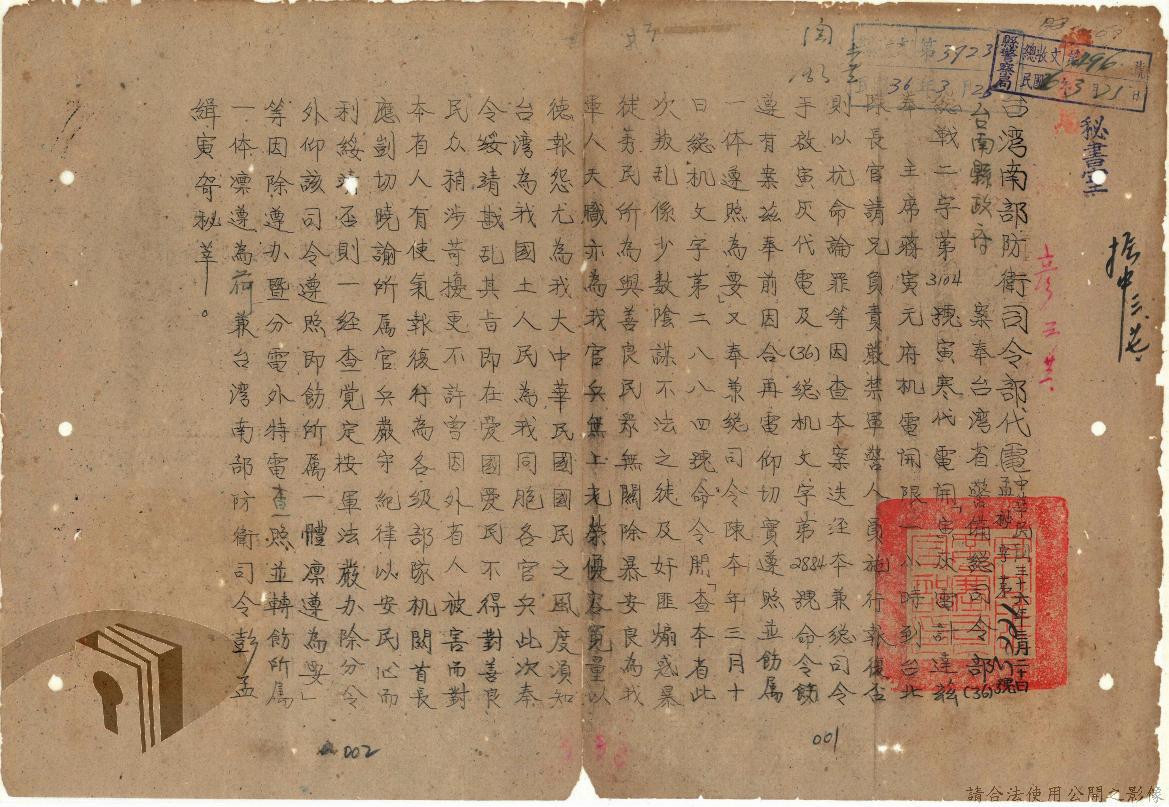 台湾南部防衛司令部代電
中華民國三十六年三月二十日
孟秘字第221號
台南縣政府　案奉台湾省警備総司令部(36)
総戰二字第3104號寅寒代電開「寅灰電計達茲
奉　主席蔣寅元府机電開限一小時到台北
陳長官請兄負責嚴禁軍警人員施行報復否
則以抗命論罪等因查本案迭迳本兼総司令
手啟寅灰代電及(36)総机文字第2884號命令飭
遵有案茲奉前因合再電仰切實遵照並飭属
一体遵照為要」又奉兼総司令陳本年三月十
日総机文字第二八八四號命令開「查本省此
次叛乱係少数陰謀不法之徒及奸匪煽惑暴
徒莠民所為與善良民眾無關除暴安良為我
軍人天職亦為我官兵無上光榮優容寬量以
德報怨尤為我大中華民國國民之風度須知
台湾為我國土人民為我同胞各官兵此次奉
令綏靖戡乱其旨即在愛國愛民不得對善良
民众稍涉苛擾更不許曾因外省人被害而對
本省人有使氣報復行為各級部隊机關首長
應剴切曉諭所属官兵嚴守紀律以安民心而
利綏靖否則一经查觉定按軍法嚴办除分令
外仰該司令遵照即飭所属一體凛遵為要」
等因除遵办暨分電外特電查照並轉飭所属
一体凛遵為荷兼台湾南部防衛司令彭孟
緝寅哿秘莘。
縣警察局
總收文
民國36年3月21日
第3923
36年3月25
秘書室
001
002
請合法使用公開之影像